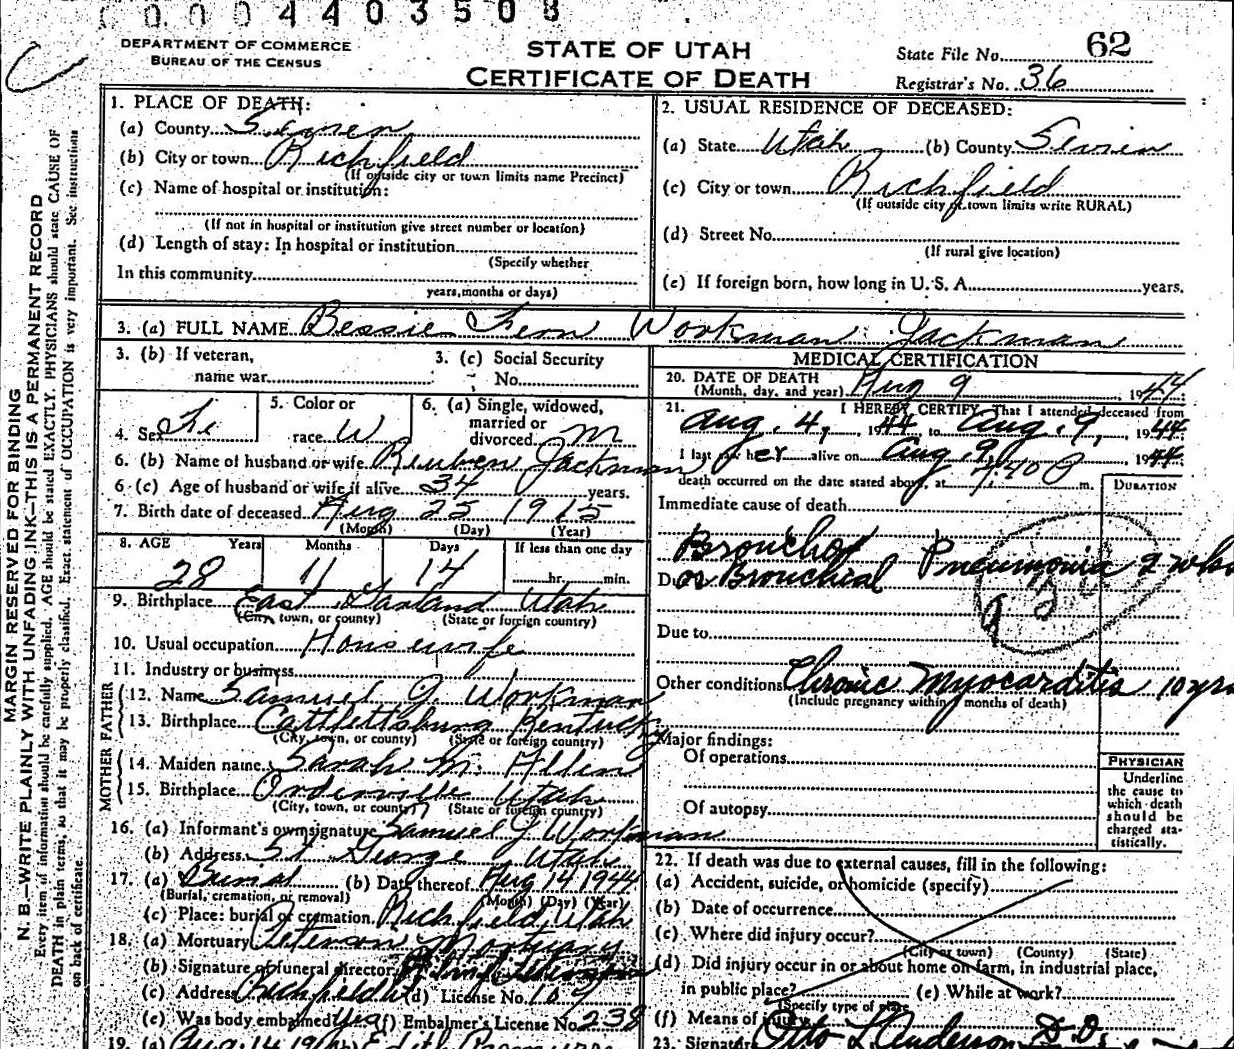 0004403508
DEPARTMENT OF COMMERCE
BUREAU OF THE CENSUS
STATE OF UTAH
CERTIFICATE OF DEATH
State File No. 62
Registrar's No. 36
MARGIN RESERVED FOR BINDING
N. B.—WRITE PLAINLY WITH UNFADING INK—THIS IS A PERMANENT RECORD
Every item of information should be carefully supplied. AGE should be stated EXACTLY. PHYSICIANS should state CAUSE OF
DEATH in plain terms, so that it may be properly classified. Exact statement of OCCUPATION is very important. See instructions
on back of certificate.
1. PLACE OF DEATH:
(a) County Sevier
(b) City or town Richfield
(If outside city or town limits name Precinct)
(c) Name of hospital or institution:
(If not in hospital or institution give street number or location)
(d) Length of stay: In hospital or institution
(Specify whether
In this community
years, months or days)
2. USUAL RESIDENCE OF DECEASED:
(a) State Utah (b) County Sevier
(c) City or town Richfield
(If outside city or town limits write RURAL)
(d) Street No.
(If rural give location)
(e) If foreign born, how long in U. S. A. years.
3. (a) FULL NAME Bessie Fern Workman Jackman
3. (b) If veteran,
name war
3. (c) Social Security
No.
4. Sex Fe
5. Color or
race W
6. (a) Single, widowed,
married or
divorced M
6. (b) Name of husband or wife Reuben Jackman
6 (c) Age of husband or wife if alive 34 years.
7. Birth date of deceased Aug 25 1915
(Month) (Day) (Year)
8. AGE Years Months Days If less than one day
28 11 14 hr. min.
9. Birthplace East Garland Utah
(City, town, or county) (State or foreign country)
10. Usual occupation Housewife
11. Industry or business
FATHER
12. Name Samuel J. Workman
13. Birthplace Cattlettsburg Kentucky
(City, town, or county) (State or foreign country)
MOTHER
14. Maiden name Sarah M. Allen
15. Birthplace Orderville Utah
(City, town, or county) (State or foreign country)
16. (a) Informant's own signature Samuel J Workman
(b) Address St George Utah
17. (a) Burial (b) Date thereof Aug 14 1944
(Burial, cremation, or removal) (Month) (Day) (Year)
(c) Place: burial or cremation Richfield, Utah
18. (a) Mortuary Peterson Mortuary
(b) Signature of funeral director
(c) Address Richfield (d) License No. 109
(e) Was body embalmed? Yes (f) Embalmer's License No. 238
19. (a) Aug. 14, 19 (b) Edith
MEDICAL CERTIFICATION
20. DATE OF DEATH
(Month, day, and year) Aug 9, 1944
21. I HEREBY CERTIFY, That I attended deceased from
Aug. 4, 1944 to Aug. 9, 1944
I last saw her alive on Aug. 9, 1944
death occurred on the date stated above, at 7:40 P m.
DURATION
Immediate cause of death
Broncho Pneumonia 2 wks
Due or Bronchial
Due to
Other conditions Chronic Myocarditis 10 yrs
(Include pregnancy within months of death)
Major findings:
Of operations
Of autopsy
PHYSICIAN
Underline
the cause to
which death
should be
charged sta-
tistically.
22. If death was due to external causes, fill in the following:
(a) Accident, suicide, or homicide (specify)
(b) Date of occurrence
(c) Where did injury occur?
(City or town) (County) (State)
(d) Did injury occur in or about home on farm, in industrial place,
in public place? (e) While at work?
(Specify type of place
(f) Means of injury
23. Signature Otto L Anderson D.O.